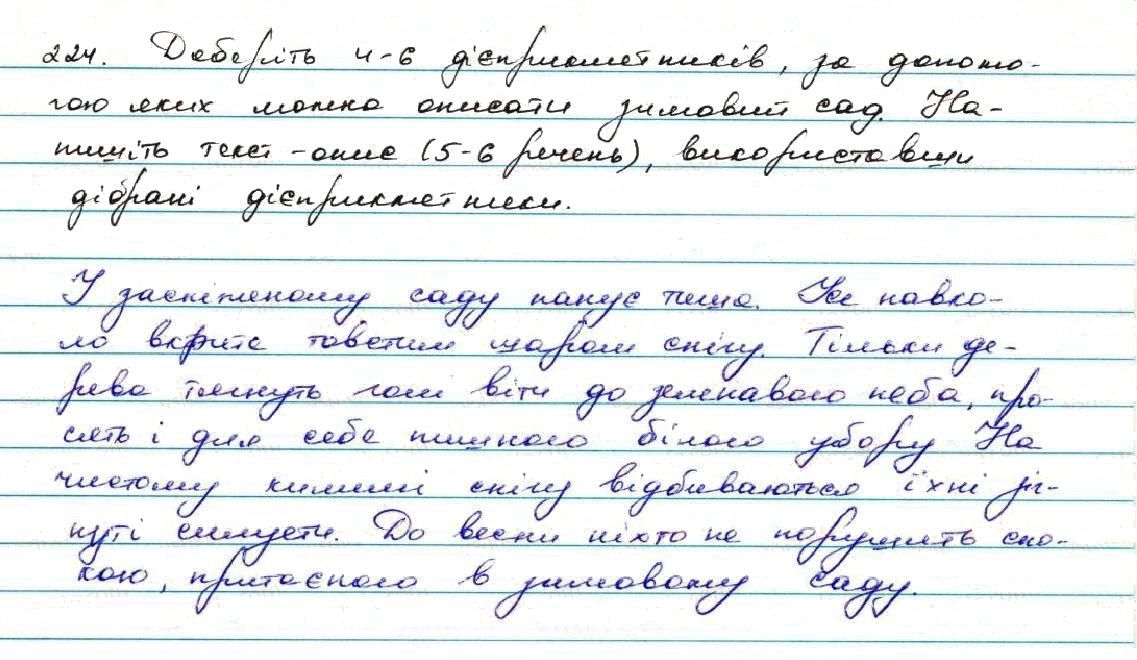 224. Доберіть 4-6 дієприкметників, за допомо-
гою яких можна описати зимовий сад. На-
пишіть текст-опис (5-6 речень), використавши
дібрані дієприкметники.
У засніженому саду панує тиша. Усе навко-
ло вкрите товстим шаром снігу. Тільки де-
рева тягнуть голі віти до зеленавого неба, про-
сять і для себе пишного білого убору На
чистому килимі снігу відбиваються їхні зіг-
нуті силуети. До весни ніхто не порушить спо-
кою, притаєного в зимовому саду.